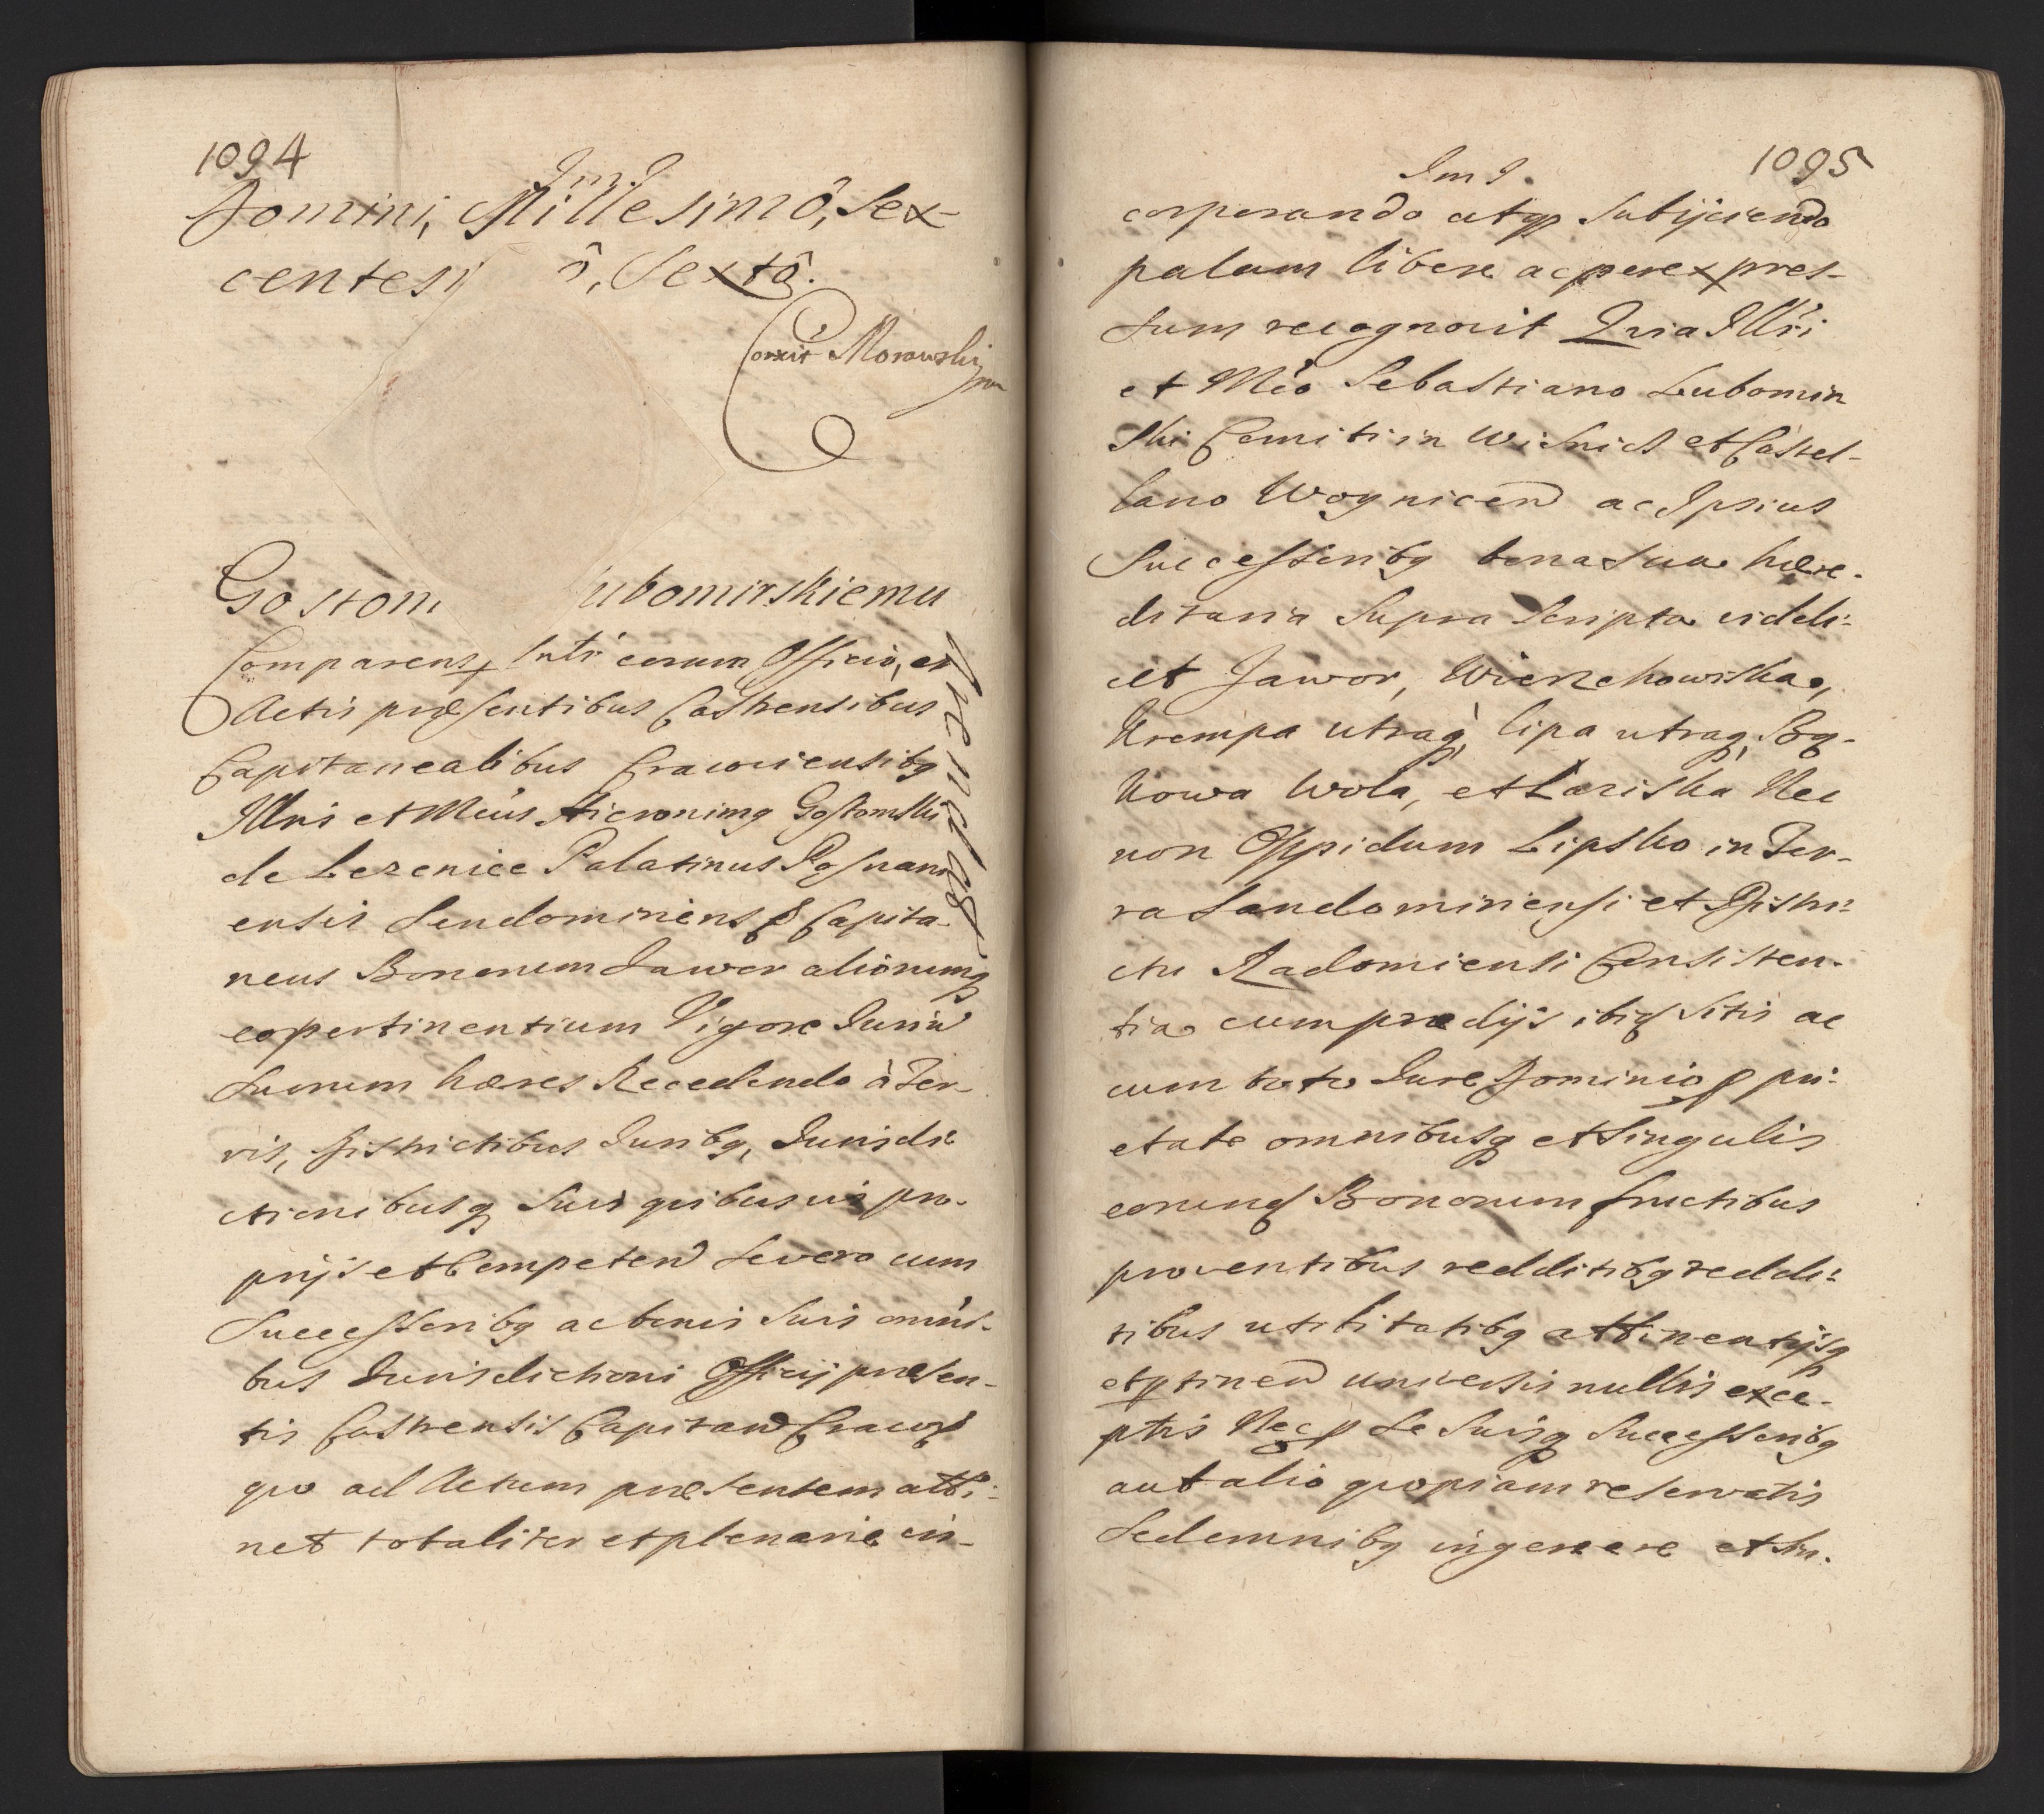 1094
Jm J
Domini, Millesimô, Sex-
centesi ô, Sextô.
Corexit Morawski
mp
Gostom ubomirskiemu
Comparens Intr eorum Officio, et
Actis præsentibus Castrensibus
Capitanealibus Cracoviensibq
Illris et Mcus Hieronimq Gostomski
de Lezenice Palatinus Posnani
ensis Sendomiriens Capita-
neus Bonorum Jawor aliorumq
eo pertinentium Vigore Juriu
Suorum hæres Recedendo à Ter-
ris, Districtibus Juribq, Jurisdi
ctionibusq Suis quibusuis pro-
prijs et Competen Se vero cum
Successoribq ac bonis Suis omni-
bus Jurisdictioni Officij præsen-
tis Castrensis Capitan Cracov
quo ad Actum præsentem atti-
net totaliter et plenarie in-
1095
Jm J.
corporando atq Subijciendo
palam libere ac per expres-
sum recognovit Quia Illri
et Mco Sebastiano Lubomir
ski Comiti in Wisnicz et Castel-
lano Woynicen ac Ipsius
Successoribq bona Sua hære-
ditaria Supra Scripta videli-
et Jawor, Wierzchowiska,
Krempa utraq, lipa utraq,
Nowa Wola, et Nec
non Oppidum Lipsko in Ter-
ra Sandomiriensi et Distri-
ctu Radomiensi Consisten-
tia cum prædijs ibiq sitis ac
cum toto Jure Dominio p pri-
etate omnibusq et Singulis
eorunq Bonorum fructibus
proventibus redditibq reddi-
tibus utilitatibq attinentijsq
et ptinen universis nullis exce-
ptis Neq p Se Suisq Successoribq
aut alio quopiam reservatis
Sed omnibq in genere et in